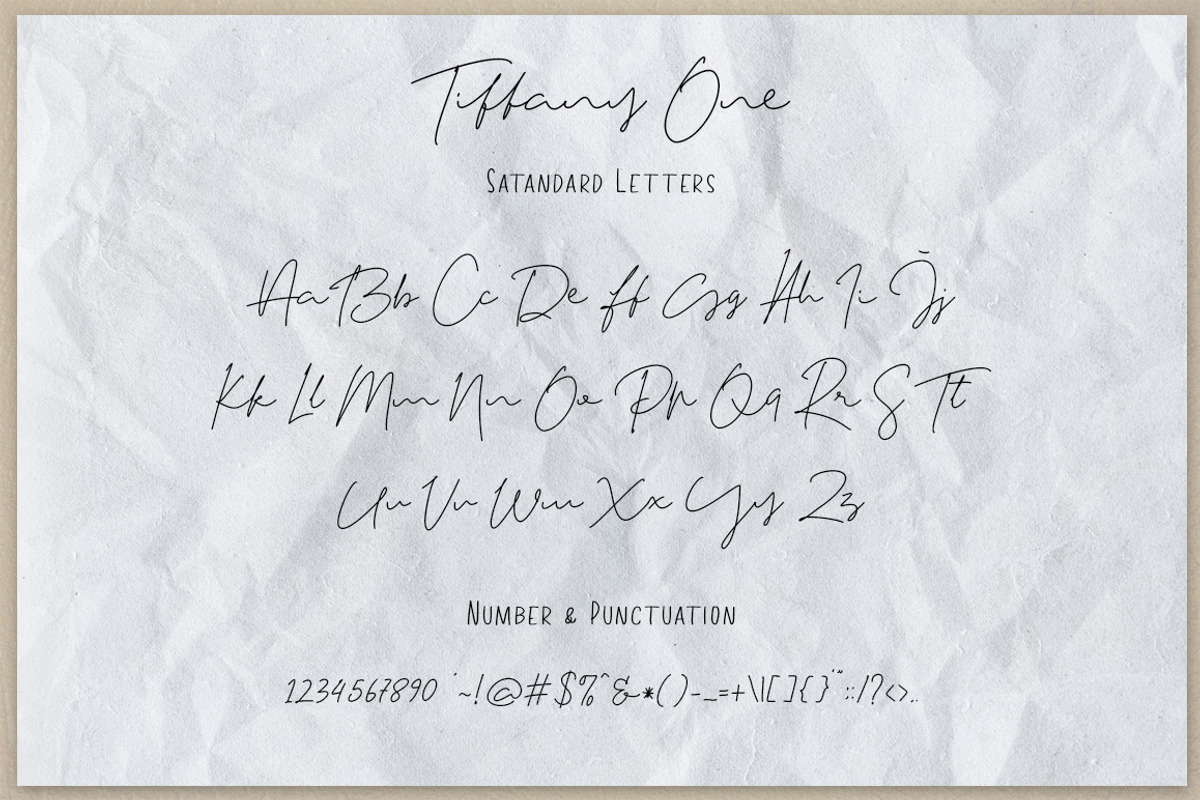 Tiffany One
SATANDARD LETTERS
Aa Bb Cc De ff Gg Hh Ii Jj
Kk Ll Mm Nn Oo Pp Qq Rr S Tt
Uu Vv Ww Xx Yy Zz
NUMBER & PUNCTUATION
1234567890 `~!@#$%^&*()-_=+\|[]{}'":;/?<>,.